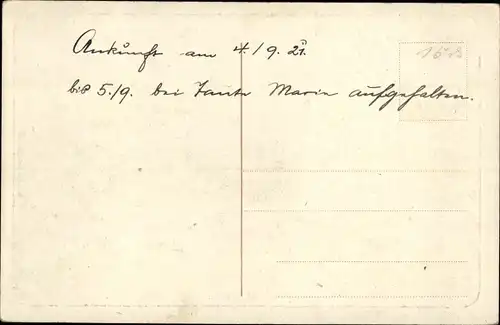 Ankunft am 4./9. 21.
bis 5./9. bei Tante Marie aufgehalten.